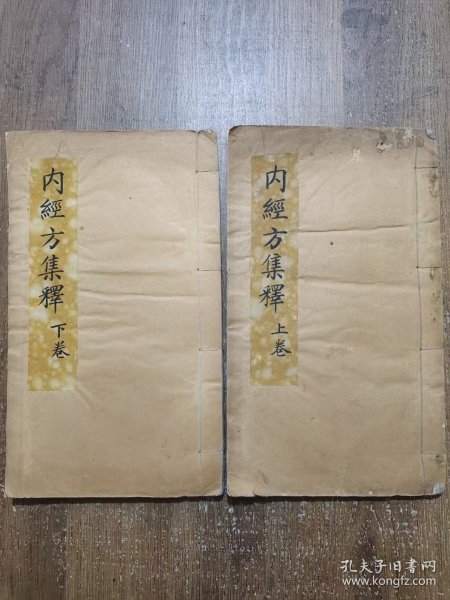 内經方集釋 上卷
内經方集釋 下卷
孔夫子旧书网
www.kongfz.com